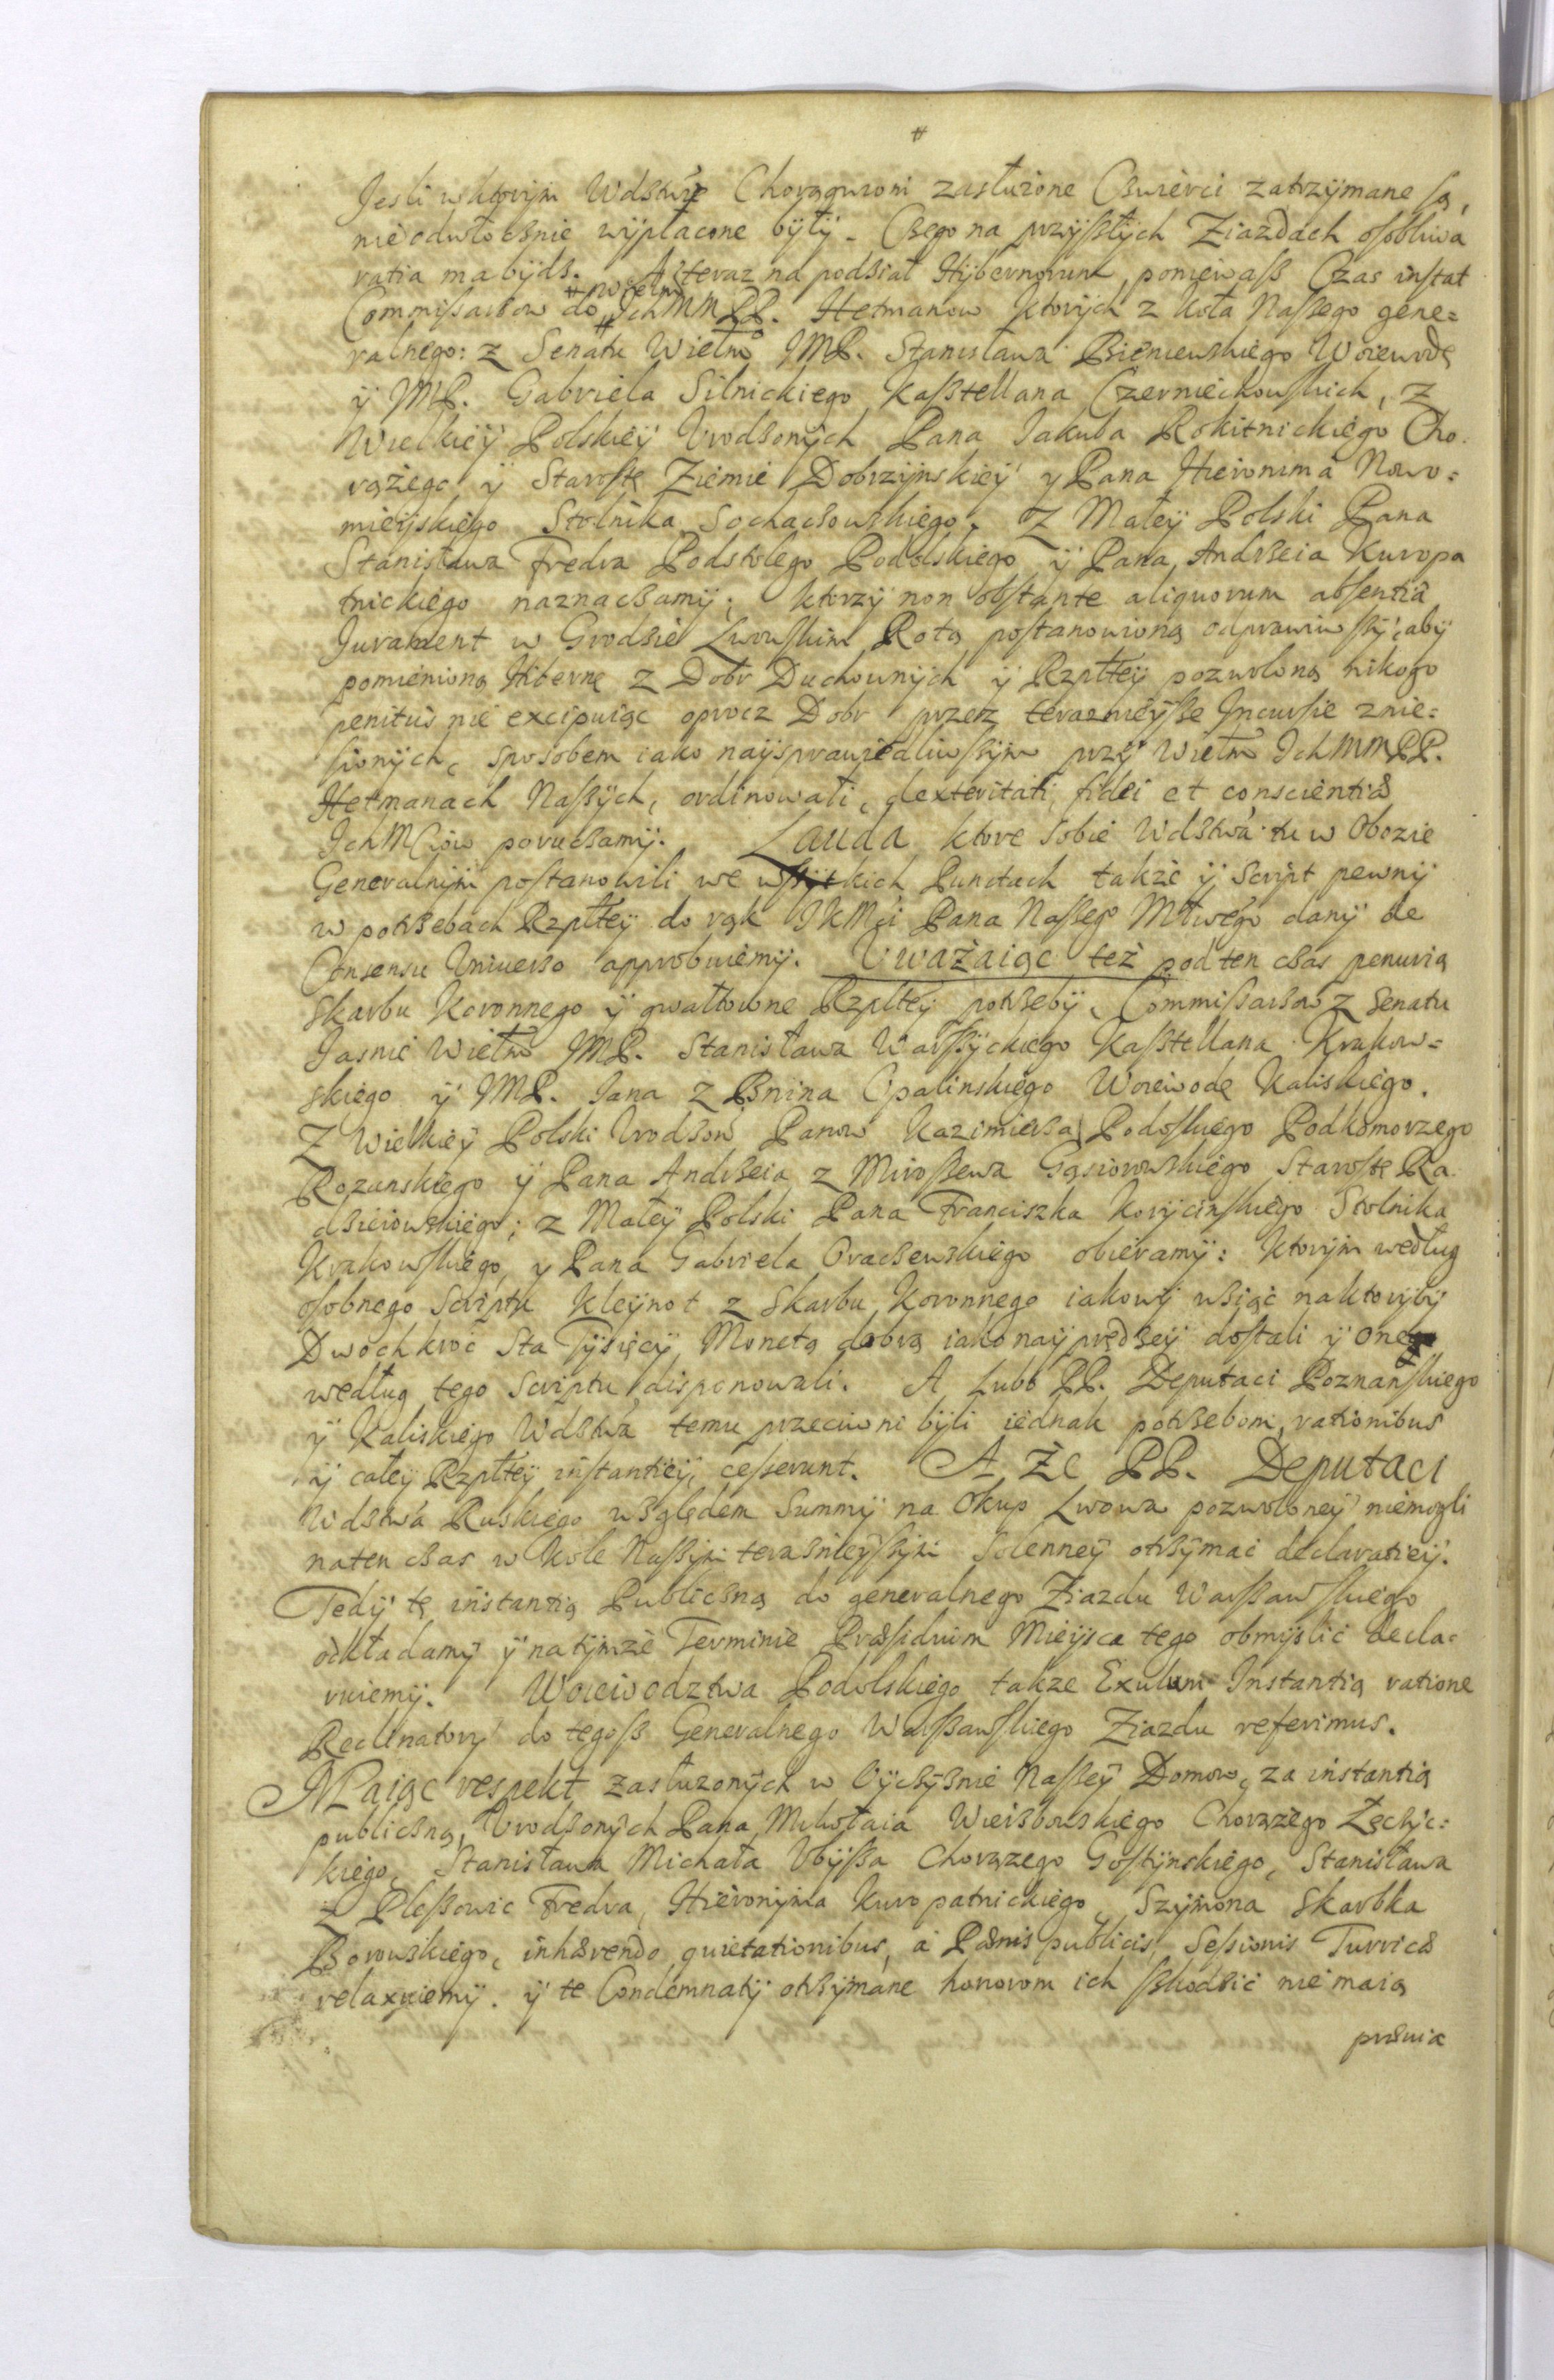 Jesli w ktorym Wdztwie Chorągwiom zasłużone Czwierci zatrzymane są,
nieodwłocznie wypłacone były. Czego na przyszłych Ziazdach osobliwa
ratia ma bydz. A teraz na podział Hybernorum, poniewasz Czas instat
Commissarzow do Wielm IchMM PP. Hetmanow ktorych z koła Naszego gene=
ralnego: z Senatu Wielmo JMP. Stanisława Bieniewskiego Woiewodę
y JMP. Gabriela Silnickiego Kasztellana Czerniechowskich, z
Wielkiey Polskiey Urodzonych Pana Jakuba Rokitnickiego Cho
rążego y Starostę Ziemie Dobrzynskiey y Pana Hieronima Nowo=
mieyskiego Stolnika Sochaczowskiego. Z Małey Polski Pana
Stanisława Fredra Podstolego Podolskiego y Pana Andrzeia Kuropa
tnickiego naznaczamy; ktorzy non obstante aliquorum absentia
Jurament w Grodzie Lwowskim Rotą postanowioną odprawiwszy, aby
pomienioną Hibernę z Dobr Duchownych y Rzpltey pozwoloną nikogo
penitus nie excipuiąc oprocz Dobr przez teraznieysze Incursie znie=
sionych, sposobem iako naysprawiedliwszym przy Wielm IchMM PP.
Hetmanach Naszych, ordinowali, dexteritati fidei et conscientiæ
IchMciow poruczamy. Lauda ktore sobie Wdztwa tu w Obozie
Generalnym postanowili we wszystkich Punctach także y Script pewny
w potrzebach Rzpltey do rąk JKMci Pana Naszego Młwego dany de
Consensu Universo approbuiemy. Uważaiąc też pod ten czas penurią
Skarbu Koronnego y gwałtowne Rzpltey potrzeby, Commissarzow z Senatu
Jasnie Wielm JMP. Stanisława Warszyckiego Kasztellana Krakow=
skiego y JMP. Jana z Bnina Opalinskiego Woiewodę Kaliskiego.
Z Wielkiey Polski Urodzon Panow Kazimierza Podoskiego Podkomorzego
Rozanskiego y Pana Andrzeia z Miroszewa Gąsiorowskiego Starostę Ra
dzieiowskiego; z Małey Polski Pana Franciszka Korycinskiego Stolnika
Krakowskiego, y Pana Gabriela Oraczewskiego obieramy: Ktorym według
osobnego Scriptu Kleynot z Skarbu Koronnego iakowy wziąć na ktoryby
Dwochkroć Sta Tysięcy Monetą dobrą iako nayprędzey dostali y onego
według tego Scriptu disponowali. A lubo PP. Deputaci Poznanskiego
y Kaliskiego Wdztwa temu przeciwni byli iednak potrzebom, rationibus
y całey Rzpltey instantiey, cesserunt. A że PP. Deputaci
Wdztwa Ruskiego względem Summy na Okup Lwowa pozwoloney niemogli
naten czas w Kole Naszym teraznieyszym Solenney otrzymać declaratiey.
Tedy tę instantią Publiczną do generalnego Ziazdu Warszawskiego
odkładamy y na tymże Terminie Præsidium Mieysca tego obmyslić decla=
ruiemy. Woiewodztwa Podolskiego takze Exulum Instantią ratione
Reclinatory do tegosz Generalnego Warszawskiego Ziazdu referimus.
Maiąc respekt zasłuzonych w Oyczyznie Naszey Domow, za instantią
publiczną, Urodzonych Pana Mikołaia Wierzbowskiego Chorążego Łęczyc=
kiego, Stanisława Michała Ubysza Chorązego Gostynskiego, Stanisława
z Pleszowic Fredra, Hieronyma Kuropatnickiego, Szymona Skarbka
Borowskiego, inhærendo quietationibus, a Pœnis publicis, Sessionis Turris
relaxuiemy. y te Condemnaty otrzymane honorom ich szkodzić nie maią